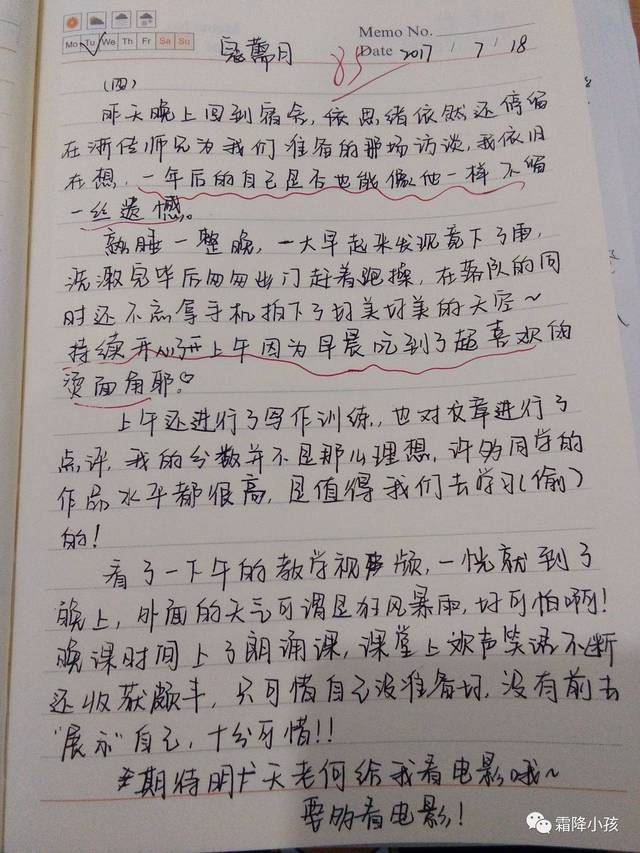 Memo No.
Mo Tu We Th Fr Sa Su
Date 2017 / 7 / 18
85
(四)
昨天晚上回到宿舍,依思绪依然还停留
在浙传师兄为我们准备的那场访谈,我依旧
在想,一年后的自己是否也能像他一样不留
一丝遗憾。
熟睡一整晚,一大早起来发现竟下了雨,
洗漱完毕后匆匆出门赶着跑操,在落队的同
时还不忘拿手机拍下了好美好美的天空~
持续开心一上午因为早晨吃到了超喜欢的
烫面角耶!♡
上午还进行了写作训练,也对文章进行了
点评,我的分数并不是那么理想,许多同学的
作品水平都很高,且值得我们去学习(偷)
的!
看了一下午的教学视频,一恍就到了
晚上,外面的天气可谓是狂风暴雨,好可怕啊!
晚课时间上了朗诵课,课堂上欢声笑语不断
还收获颇丰,只可惜自己没准备好,没有前去
"展示"自己,十分可惜!!
期待明天老何给我看电影哦~
要多看电影!
霜降小孩